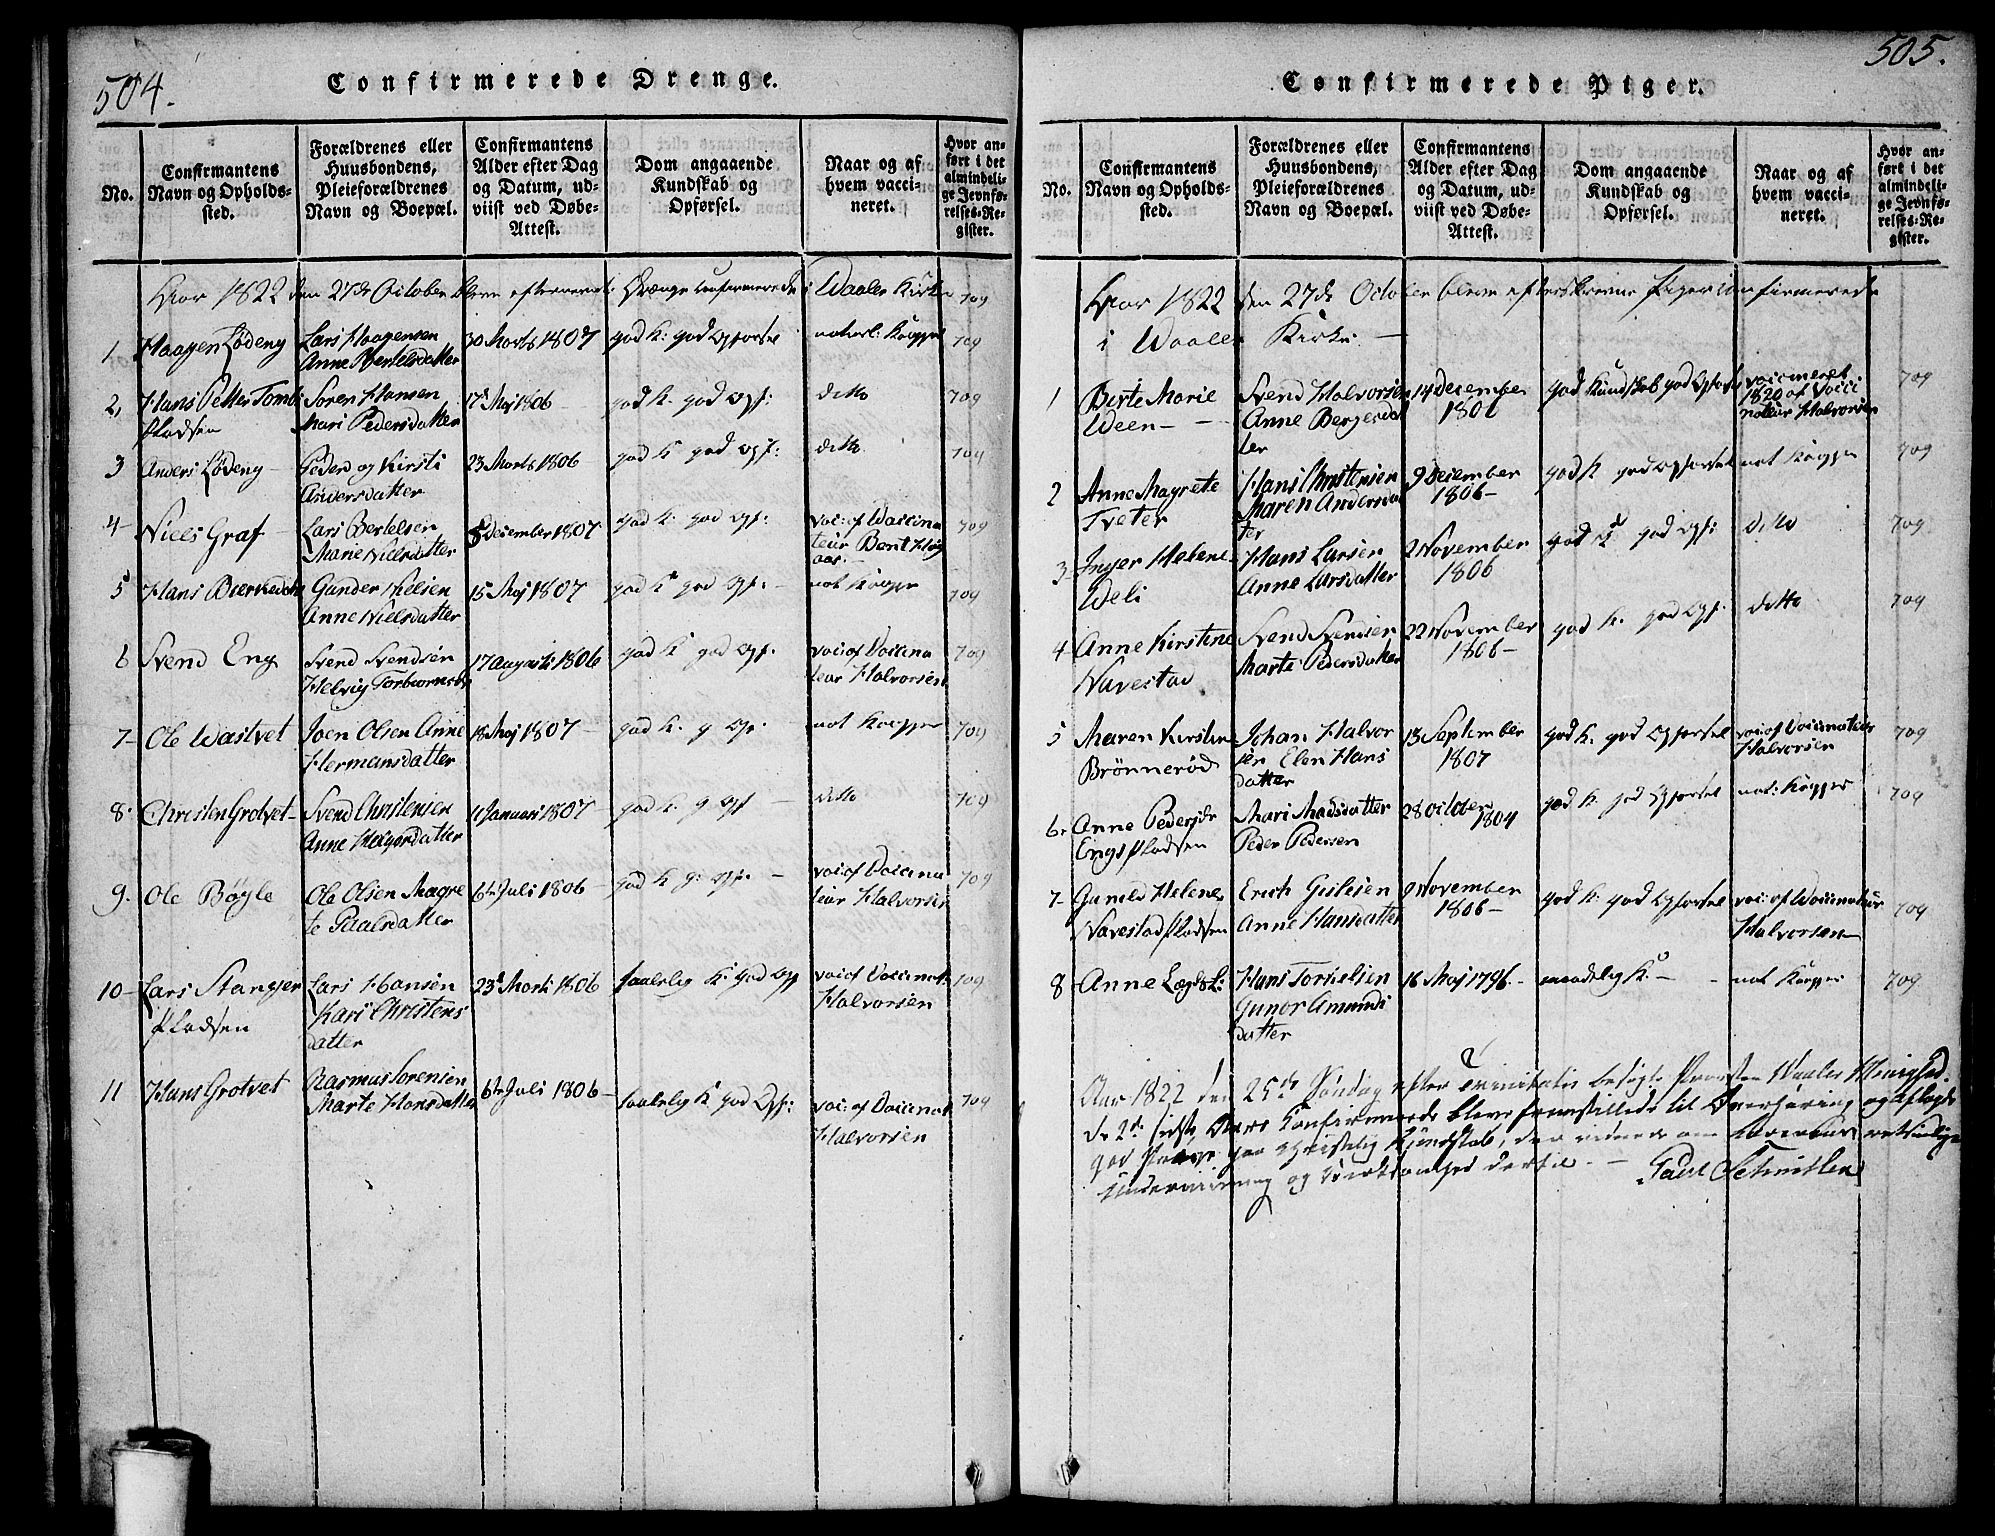 504.
Confirmerede Drenge.
No.
Confirmantens
Navn og Opholds-
sted.
Forældrenes eller
Huusbondens,
Pleieforældrenes
Navn og Boepæl.
Confirmantens
Alder efter Dag
og Datum, ud-
viist ved Døbe-
Attest.
Dom angaaende
Kundskab og
Opførsel.
Naar og af
hvem vacci-
neret.
Hvor an-
ført i det
almindeli-
ge Jevnfø-
relses-Re-
gister.
Aar 1822 den 27de October bleve efternevnte Drænge confirmerede i Waaler Kirke 709
1. Haagen Lødeng
Lars Haagensen
Anne Bertelsdatter
30 Marts 1807
god K: god Opførsel
naturl: Kopper
709
2, Hans Petter Tomb
Pladsen
Søren Hansen
Mari Pedersdatter
17 Maj 1806
god K. god Opf:
ditto
709
3 Anders Lødeng
Peder og Kirsti
Andersdatter
23 Marts 1806
god K god Opf:
ditto
709
4- Niels Graf
Lars Bertelsen
Marie Nielsdatter
8 December 1807.
god K. god Opf:
vac: af Vaccina
teur Bent Høg
aas.
709
5 Hans
Gunder Nielsen
Anne Nielsdatter
15 Maj 1807
god K god Opf:
nat Kopper
709
6 Svend Eng
Svend Svendsen
Helvig
17 Augusti 1806
god K god Opf.
vac: af Vaccina
teur Halvorsen
709
7- Ole Wastvet
Joen Olsen Anne
Hermansdatter
18 Maj 1807
god K. g Opf.
nat Kopper
709
8. Christen Grotvet
Svend Christensen
Anne Helgesdatter
11 Januari 1807
god K. g Opf
ditto
709
9. Ole Bøgle
Ole Olsen Magre
te Paalsdatter
6te Juli 1806
god K g: Opf.
vac af Vaccina
teur Halvorsen
709
10- Lars Stanger
Pladsen
Lars Hansen
Kari Christens
datter
23d Marti 1806
taalelig K: god Opf
vac af Vaccinat:
Halvorsen
709
11 Hans Grotvet
Rasmus Sørensen
Marte Hansdatter
6te Juli 1806
taalelig K god Opf:
vac: af Vaccinat
Halvorsen
709
505.
Confirmerede Piger.
No.
Confirmantens
Navn og Opholds-
sted.
Forældrenes eller
Huusbondens,
Pleieforældrenes
Navn og Boepæl.
Confirmantens
Alder efter Dag
og Datum, ud-
viist ved Døbe-
Attest.
Dom angaaende
Kundskab og
Opførsel.
Naar og af
hvem vacci-
neret.
Hvor an-
ført i det
almindeli-
ge Jevnfø-
relses-Re-
gister.
Aar 1822 den 27de October bleve efterskrevne Piger confirmerede
i Waaler Kirke. —
1 Berte Marie
Ween
Svend Halvorsen
Anne Bergesdat
ter
14 December
1806
god Kundskab god Opførsel
vaccineret
1820 af Vacci
nateur Halvorsen
709
2 Anne Magrete
Tveter
Hans Christensen
Maren Andersdat
ter
9 December
1806-
god K god Opførsel
nat Kopper
709
3- Inger Helene
Weli
Hans Larsen
Anne Larsdatter
2 November
1806
god K god Opf:
ditto
709
4 Anne Kirstine
Navestad
Svend Svendsen
Marte Pedersdatter
22 November
1806-
god K. god Opf.
ditto
709
5 Maren Kirstin
Brönnerød
Johan Halvor
sen Elen Hans
datter
13 September
1807
god K. god Opførsel
vac: af Vaccinateur
Halvorsen
709
6- Anne Pedersdr
Engs Pladsen
Mari Madsdatter
Peder Pedersen
28 October 1804
god K. god Opførsel
nat: Kopper
709
7- Gunild Helene
Navestad Pladsen
Erich
Anne Hansdatter
9 November
1806-
god K. god Opførsel
vac: af Vaccinateur
Halvorsen
709
8 Anne
Hans Torkelsen
Gunor Amunds
datter
16 Maj 1796.
maadelig K. -
nat Kopper
709
Aar 1822 den 25de Søndag efter Trinitatis besøgte Provsten Vaaler Menighed.
De 2de sidste Aars Confirmerede bleve fremstillede til Overhøring og aflagde
god Prøve paa christelig Kundskab,
Underviisning og Virksomhed dertil. —